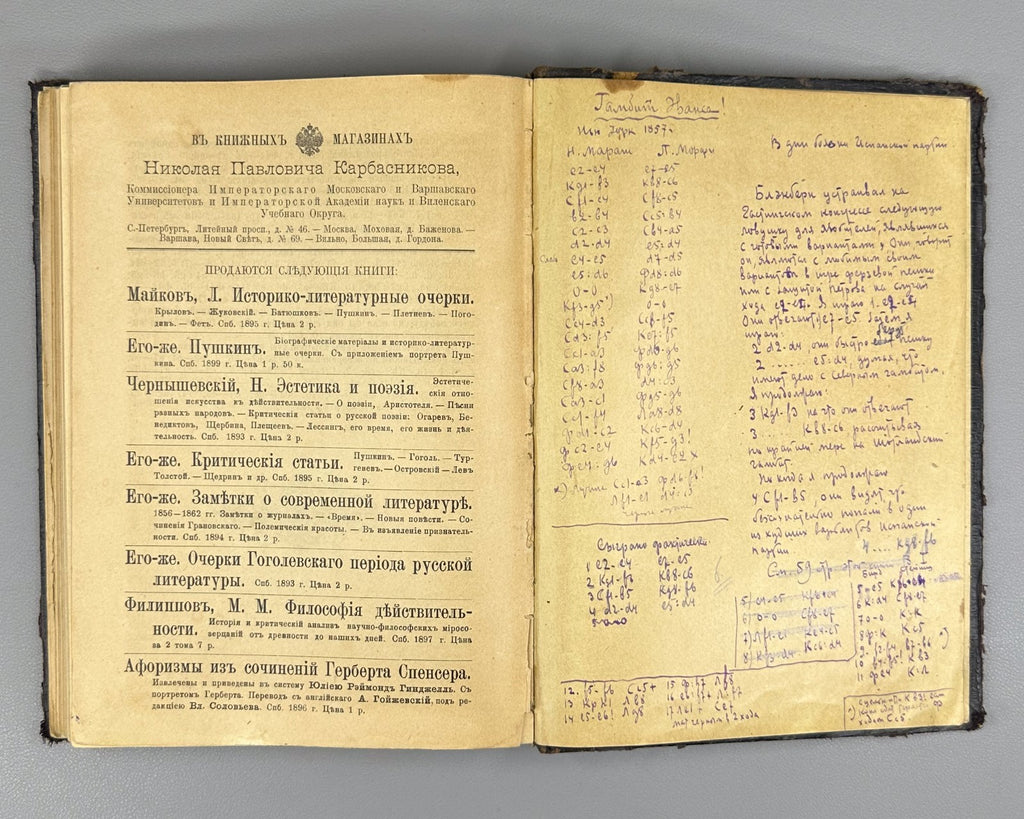 ВЪ КНИЖНЫХЪ МАГАЗИНАХЪ
Николая Павловича Карбасникова,
Коммиссіонера Императорскаго Московскаго и Варшавскаго
Университетовъ и Императорской Академіи наукъ и Виленскаго
Учебнаго Округа.
С.-Петербургъ, Литейный просп., д. № 46. — Москва. Моховая, д. Баженова. —
Варшава, Новый Свѣтъ, д. № 69. — Вильно, Большая, д. Гордона.
ПРОДАЮТСЯ СЛѢДУЮЩІЯ КНИГИ:
Майковъ, Л. Историко-литературные очерки.
Крыловъ. — Жуковскій. — Батюшковъ. — Пушкинъ. — Плетневъ. — Пого-
динъ. — Фетъ. Спб. 1895 г. Цѣна 2 р.
Его-же. Пушкинъ. Біографическіе матеріалы и историко-литератур-
ные очерки. Съ приложеніемъ портрета Пуш-
кина. Спб. 1899 г. Цѣна 1 р. 50 к.
Чернышевскій, Н. Эстетика и поэзія. Эстетиче-
скія отно-
шенія искусства къ дѣйствительности. — О поэзіи, Аристотеля. — Пѣсни
разныхъ народовъ. — Критическія статьи о русской поэзіи: Огаревъ, Бе-
недиктовъ, Щербина, Плещеевъ. — Лессингъ, его время, его жизнь и дѣя-
тельность. Спб. 1893 г. Цѣна 2 р.
Его-же. Критическія статьи. Пушкинъ. — Гоголь. — Тур-
геневъ. — Островскій — Левъ
Толстой. — Щедринъ и др. Спб. 1895 г. Цѣна 2 р.
Его-же. Замѣтки о современной литературѣ.
1856—1862 гг. Замѣтки о журналахъ. — «Время». — Новыя повѣсти. — Со-
чиненія Грановскаго. — Полемическія красоты. — Въ изъявленіе признатель-
ности. Спб. 1894 г. Цѣна 2 р.
Его-же. Очерки Гоголевскаго періода русской
литературы. Спб. 1893 г. Цѣна 2 р.
Филипповъ, М. М. Философія дѣйствитель-
ности. Исторія и критическій анализъ научно-философскихъ міросо-
зерцаній отъ древности до нашихъ дней. Спб. 1897 г. Цѣна
за 2 тома 7 р.
Афоризмы изъ сочиненій Герберта Спенсера.
Извлечены и приведены въ систему Юліею Рэймондъ Гинджелль. Съ
портретомъ Герберта. Переводъ съ англійскаго А. Гойжевскій, подъ ре-
дакціею Вл. Соловьева. Спб. 1896 г. Цѣна 1 р.
Гамбит Эванса!
Нью Йорк 1857 г.
Н. Мараш П. Морфи
e2-e4 e7-e5
Kg1-f3 Kb8-c6
Cf1-c4 Cf8-c5
b2-b4 Cc5:b4
c2-c3 Cb4-a5
d2-d4 e5:d4
e4-e5 d7-d5
e5:d6 Фd8:d6
0-0 Kg8-e7
Kf3-g5 0-0
Cc4-d3 Cc8-f5
Cd3:f5 Ke7:f5
Cc1-a3 Фd6-g6
Ca3:f8 Фg6:g5
Cf8-a3 d4:c3
Ca3-c1 Фg5-g6
Cc1-f4 Ла8-d8
Фd1-c2 Kc6-d4
Фc2-e4 Kf5-g3!
Фe4:g6 Kd4-e2X
Сыграно фактически
1 e2-e4 e7-e5
2 Kg1-f3 Kb8-c6
3 Cf1-b5 Kg8-f6
4 d2-d4 e5:d4
5 0-0
12. f5-f6 Cc5+ 15 Ф:h7 Лg8
13 Kph1
14 e5-e6! 17 Лe1+ Ce7
мат черным в 2 хода
Блэкберн устраивал на
Гастингском конгрессе следующую
ловушку для любителей, являвшихся
с готовыми вариантами. Они говорит
он, являются с любимым своим
вариантом в игре ферзевой пешки
или с защитой Петрова на случай
хода e2-e4. Я играю 1. e2-e4
Они отвечают e7-e5. Затем я
играю:
2 d2-d4 они быстро берут пешку
2 ...... e5:d4, думая, что
имеют дело с Северным гамбитом.
Я продолжаю:
3 Kg1-f3 на что они отвечают
3 ... Kb8-c6 рассчитывая
по крайней мере на Шотландский
гамбит.
Но когда я продолжаю
4 Cf1-b5, они видят, что
бессознательно попали в один
из худших вариантов Испанской
партии
4 .... Kg8-f6